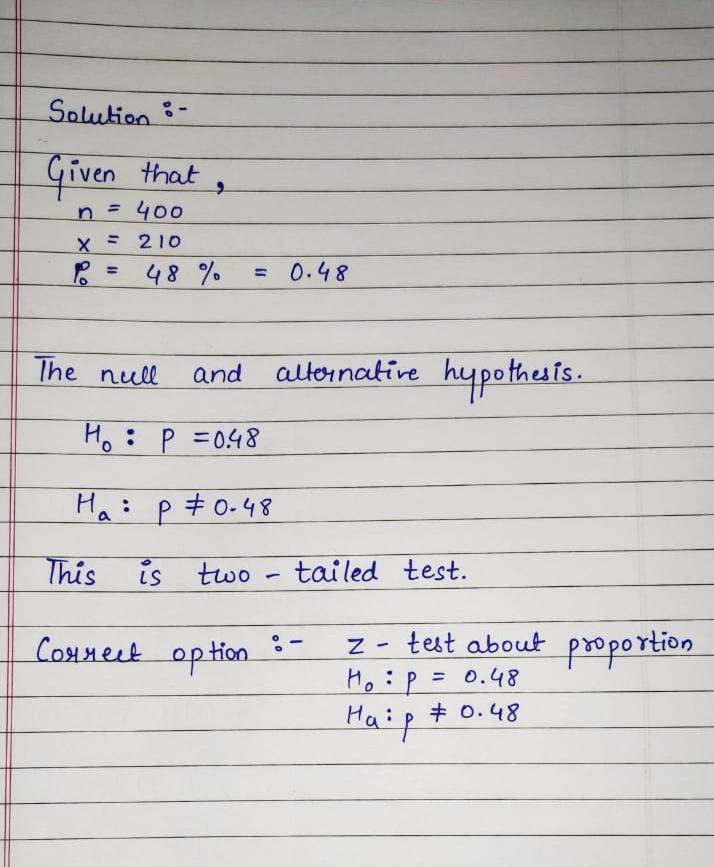 Solution :-
Given that ,
n = 400
x = 210
P₀ = 48 % = 0.48
The null and alternative hypothesis.
H₀ : P = 0.48
Hₐ : p ≠ 0.48
This is two - tailed test.
Correct option :- z - test about proportion
H₀ : p = 0.48
Hₐ : p ≠ 0.48